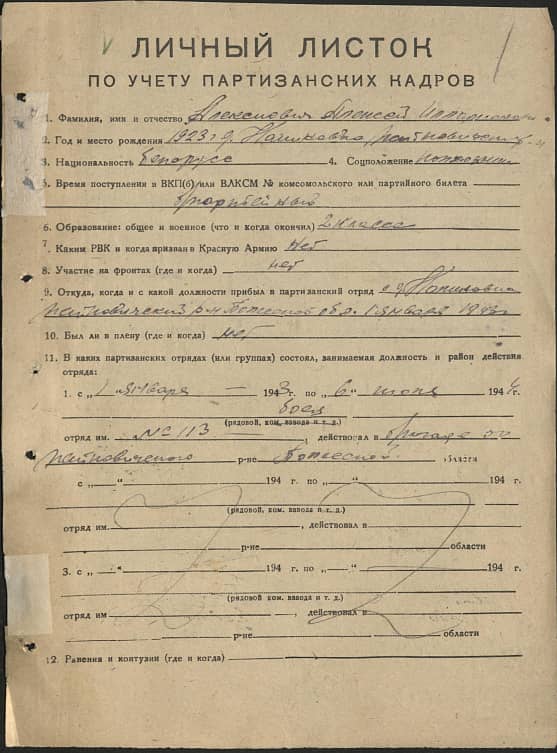 ЛИЧНЫЙ ЛИСТОК
ПО УЧЕТУ ПАРТИЗАНСКИХ КАДРОВ
1. Фамилия, имя и отчество Алексиевич Алексей
2. Год и место рождения 1923 г. д.
3. Национальность Белорусс 4. Соцположение
5. Время поступления в ВКП(б) или ВЛКСМ № комсомольского или партийного билета
6. Образование: общее и военное (что и когда окончил) 2 класса
7. Каким РВК и когда призван в Красную Армию нет
8. Участие на фронтах (где и когда) нет
9. Откуда, когда и с какой должности прибыл в партизанский отряд с д.
р-н обл. 1 января 1943
10. Был ли в плену (где и когда) нет
11. В каких партизанских отрядах (или группах) состоял, занимаемая должность и район действия
отряда:
1. с „1" января 1943 г. по „6" июля 1944 г.
боец
(рядовой, ком. взвода и т. д.)
отряд им. № 113, действовал в бригаде
р-не области
с „ " 194 г. по „ " 194 г.
(рядовой, ком. взвода и т. д.)
отряд им. , действовал в
р-не области
3. с „ " 194 г. по „ " 194 г.
(рядовой, ком. взвода и т. д.)
отряд им , действовал в
р-не области
12. Ранения и контузии (где и когда)